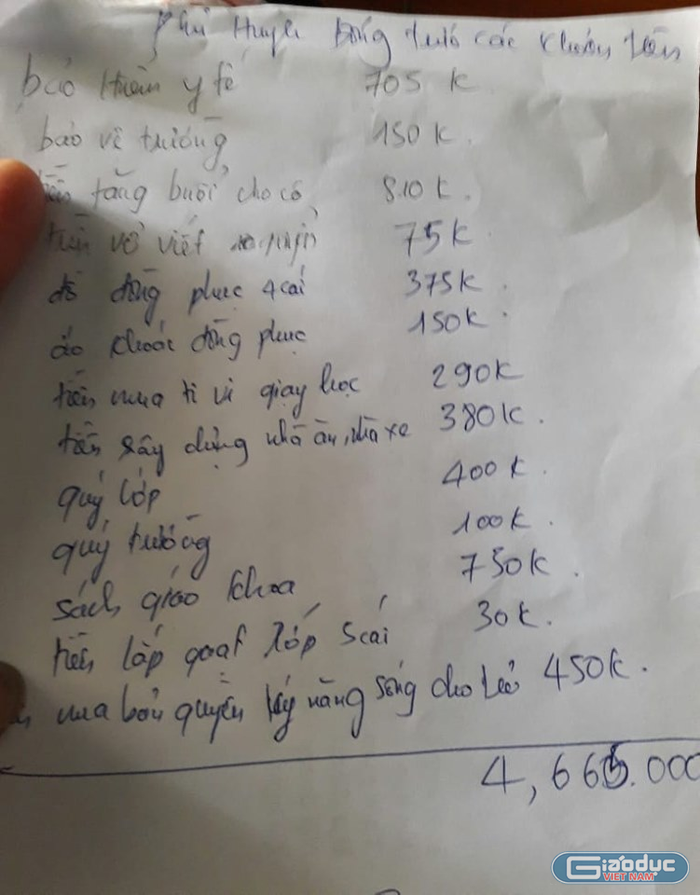 Phụ Huynh đóng trước các khoản tiền
bảo hiểm y tế 705 k.
bảo vệ trường 150k.
tiền tăng buổi cho cô 810k.
tiền vở viết 75k
đồ đồng phục 4 cái 375k.
áo khoác đồng phục 150k.
tiền mua ti vi giạy học 290k
tiền xây dựng nhà ăn, nhà xe 380k.
quỹ lớp 400k.
quỹ trường 100k.
sách giáo khoa 750k.
tiền lắp quạt lớp 5 cái 30k.
mua bản quyền kỹ năng sống cho trẻ 450k.
4,665.000
Giáoduc
VIỆT NAM